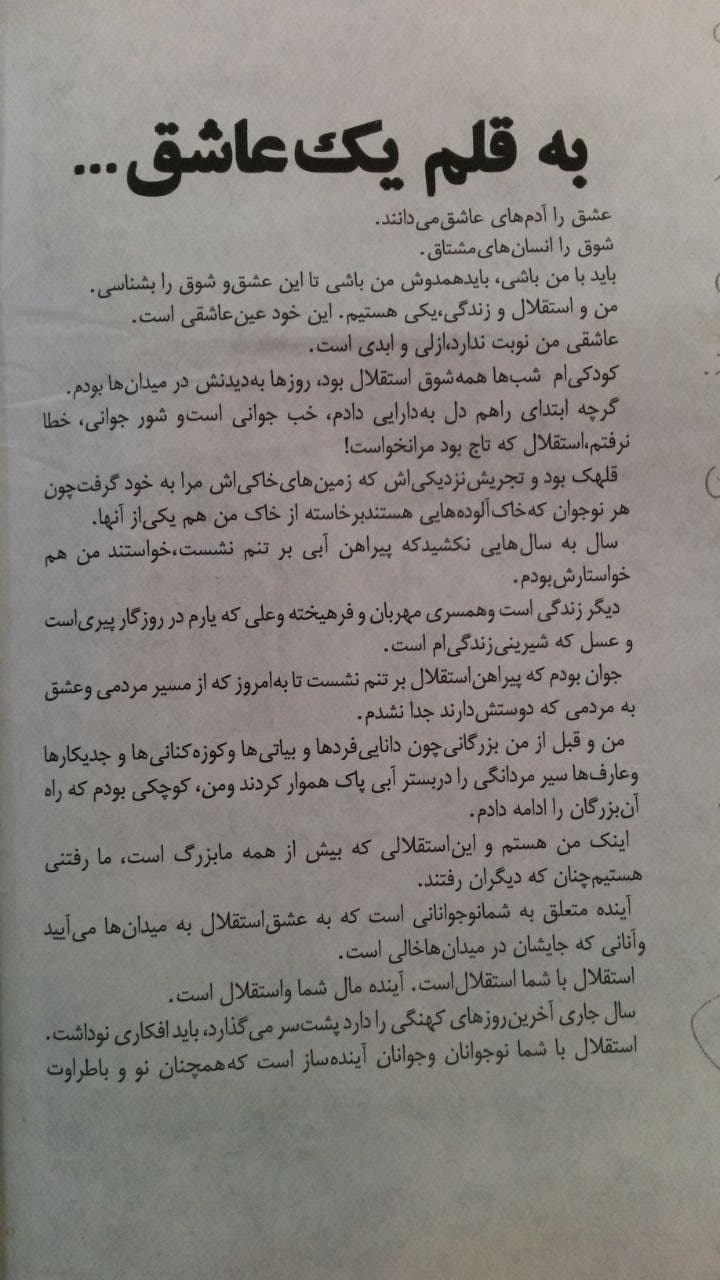 به قلم یک عاشق ...
عشق را آدم‌های عاشق می‌دانند.
شوق را انسان‌های مشتاق.
باید با من باشی، باید همدوش من باشی تا این عشق و شوق را بشناسی.
من و استقلال و زندگی، یکی هستیم. این خود عین عاشقی است.
عاشقی من نوبت ندارد، ازلی و ابدی است.
کودکی‌ام شب‌ها همه شوق استقلال بود، روزها به دیدنش در میدان‌ها بودم.
گرچه ابتدای راهم دل به دارایی دادم، خب جوانی است و شور جوانی، خطا
نرفتم، استقلال که تاج بود مرا نخواست!
قلهک بود و تجریش نزدیکی‌اش که زمین‌های خاکی‌اش مرا به خود گرفت چون
هر نوجوان که خاک‌آلوده‌هایی هستند برخاسته از خاک من هم یکی از آنها.
سال به سال‌هایی نکشید که پیراهن آبی بر تنم نشست، خواستند من هم
خواستارش بودم.
دیگر زندگی است و همسری مهربان و فرهیخته و علی که یارم در روزگار پیری است
و عسل که شیرینی زندگی‌ام است.
جوان بودم که پیراهن استقلال بر تنم نشست تا به امروز که از مسیر مردمی و عشق
به مردمی که دوستش دارند جدا نشدم.
من و قبل از من بزرگانی چون دانایی‌فردها و بیاتی‌ها و کوزه‌کنانی‌ها و جدیکارها
و عارف‌ها سیر مردانگی را در بستر آبی پاک هموار کردند و من، کوچکی بودم که راه
آن بزرگان را ادامه دادم.
اینک من هستم و این استقلالی که بیش از همه ما بزرگ است، ما رفتنی
هستیم چنان که دیگران رفتند.
آینده متعلق به شما نوجوانانی است که به عشق استقلال به میدان‌ها می‌آیید
و آنانی که جایشان در میدان‌ها خالی است.
استقلال با شما استقلال است. آینده مال شما و استقلال است.
سال جاری آخرین روزهای کهنگی را دارد پشت سر می‌گذارد، باید افکاری نو داشت.
استقلال با شما نوجوانان و جوانان آینده‌ساز است که همچنان نو و با طراوت